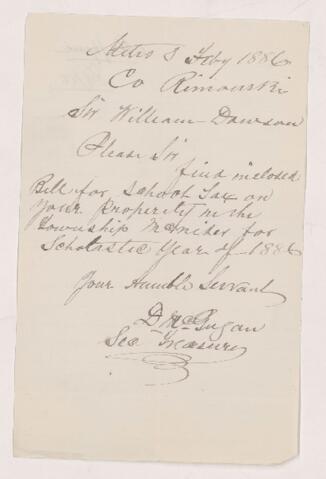 Metis 8 Feby 1886
Co Rimouski
Sir William Dawson
Please Sir
find inclosed
Bill for School Tax on
your Property in the
Township McNider for
Scholastic Year of 1886
Your Humble Servant
D Mc
Sec Treasurer